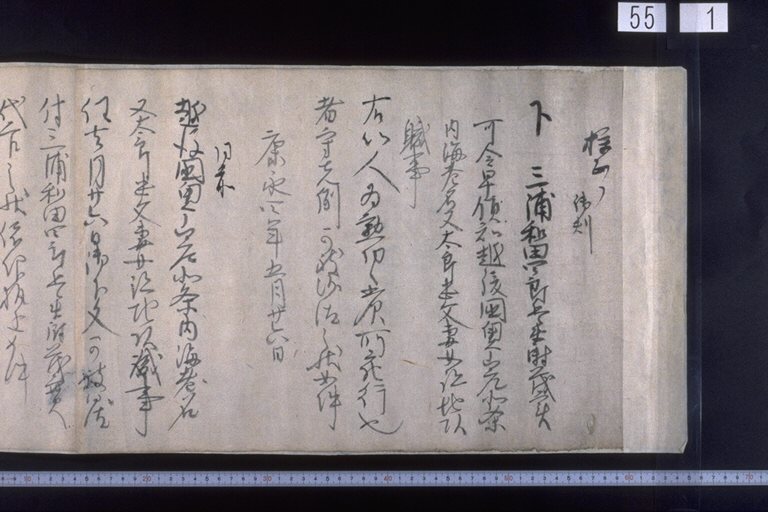 55 1
御判
下 三浦和田四郎兵衛尉茂実
可令早領知越後国奥山庄北条
内海老名又太郎忠文妻女跡地頭
職事
右以人為勲功之賞所宛行也
者守先例可致沙汰之状如件
康永四年五月廿六日
同前
越後国奥山庄北条内海老名
又太郎忠文妻女跡地頭職事
任去月廿六日御下文可被沙汰
付三浦和田四郎兵衛尉茂実
代官之状依仰執達如件